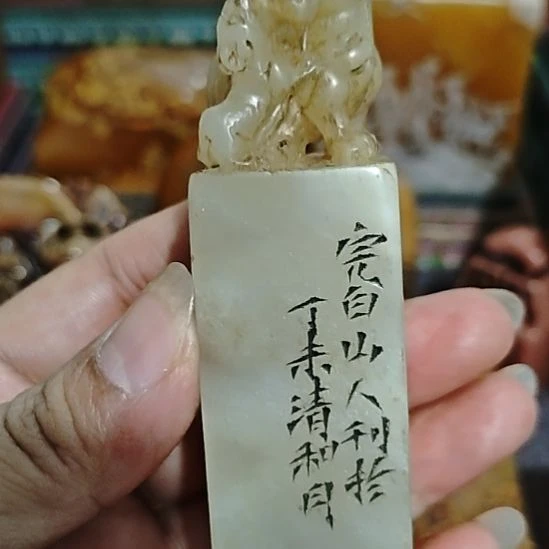 完白山人刊於
丁未清和月